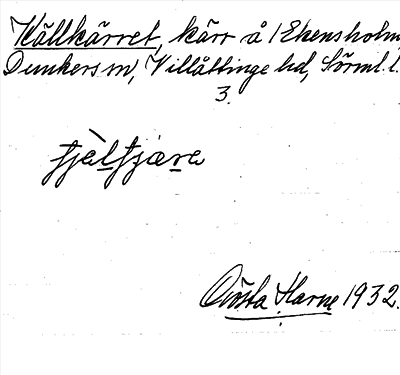 Källkärret, kärr å 1 Ekensholm,
Dunkers sn, Villåttinge hd, Sörml. l.
3.
tjèltjæra
Gösta Harne 1932.